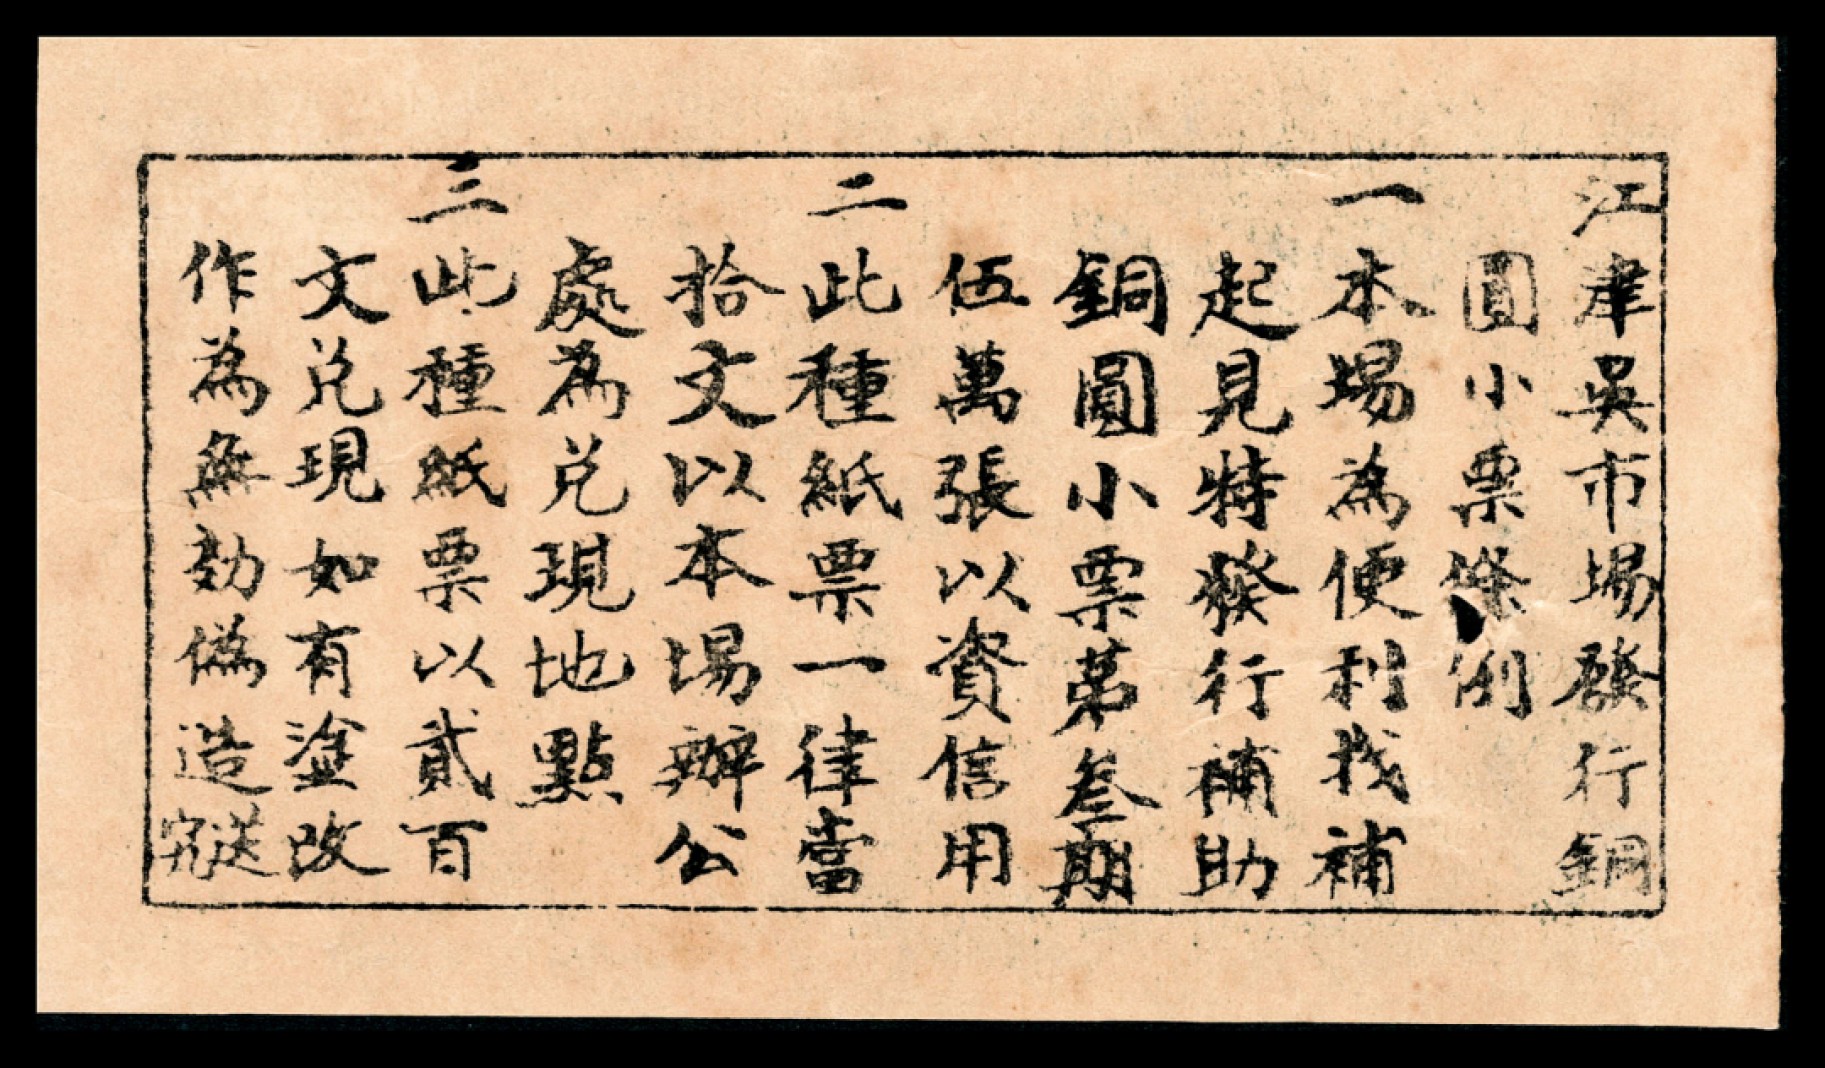 江津吳市場發行銅
圓小票條例
一本場為便利找補
起見特發行補助
銅圓小票第叁期
伍萬張以資信用
二此種紙票一律當
拾文以本場辦公
處為兌現地點
三此種紙票以貳百
文兌現如有塗改
作為無効偽造送究